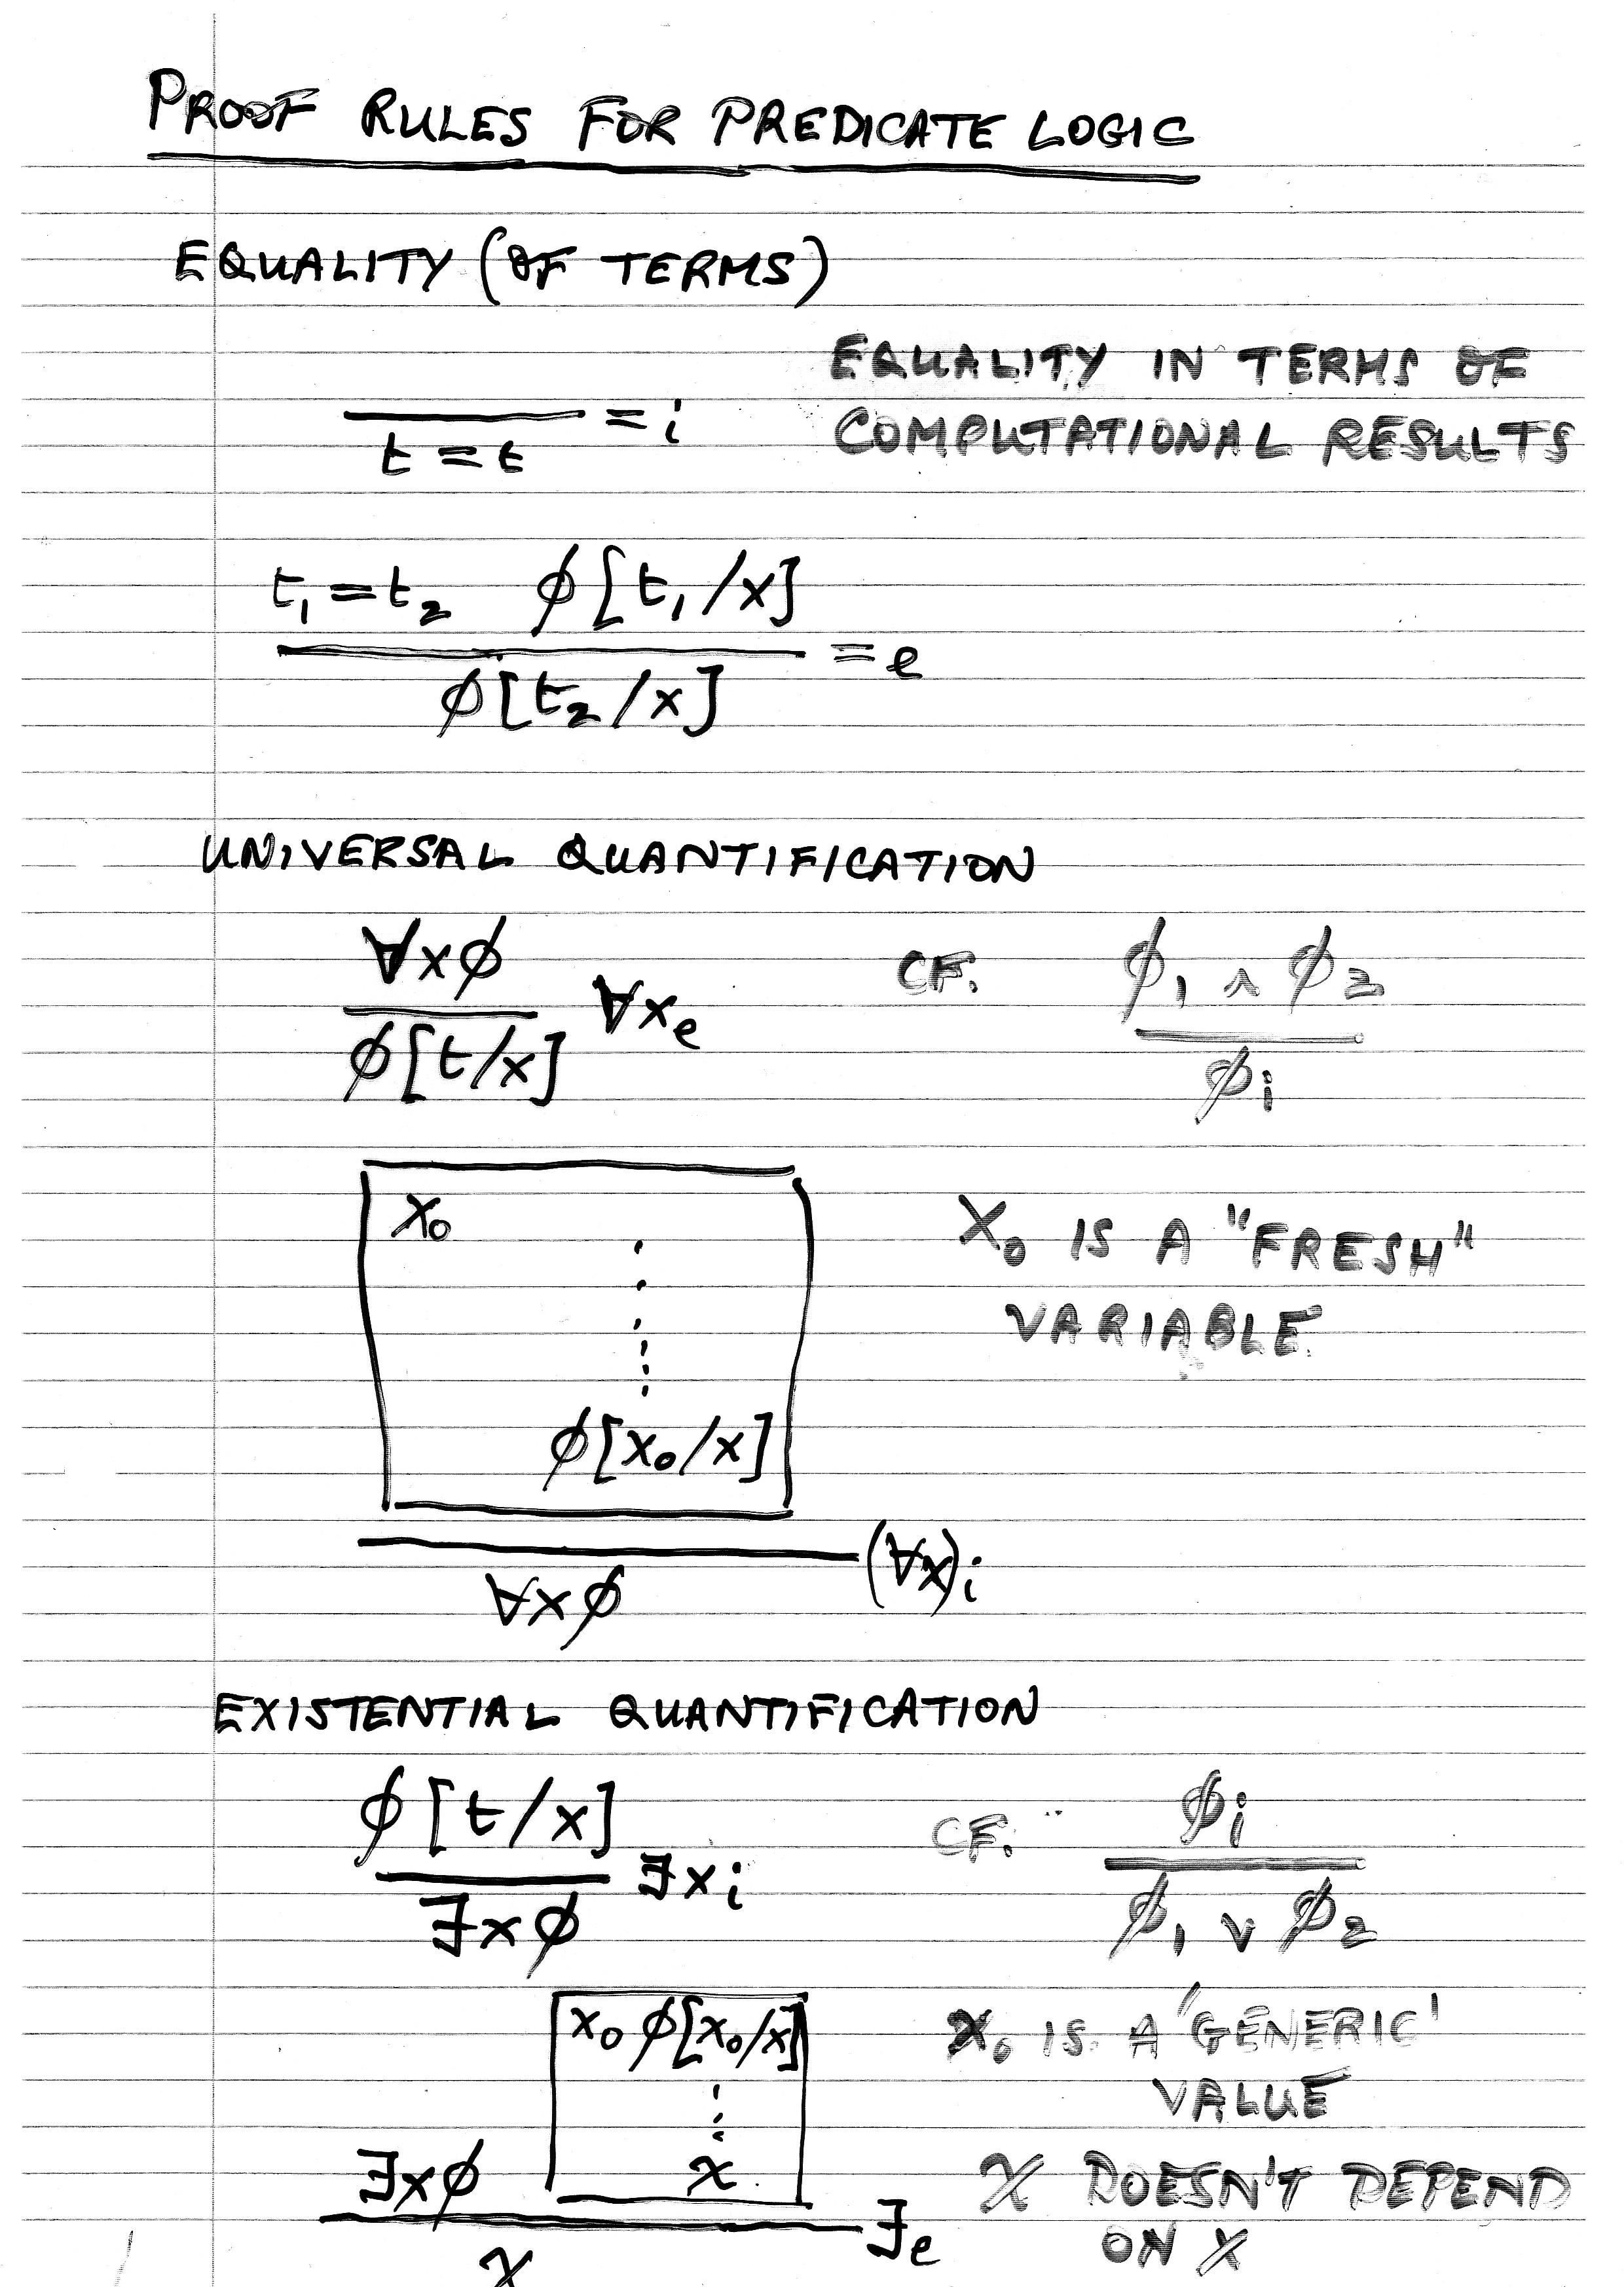 PROOF RULES FOR PREDICATE LOGIC
EQUALITY (OF TERMS)
EQUALITY IN TERMS OF
COMPUTATIONAL RESULTS
=i
t = t
t₁ = t₂ φ[t₁/x]
=e
φ[t₂/x]
UNIVERSAL QUANTIFICATION
∀xφ
∀xₑ
φ[t/x]
CF.
φ₁ ∧ φ₂
φᵢ
x₀
φ[x₀/x]
X₀ IS A "FRESH"
VARIABLE
(∀x)ᵢ
∀xφ
EXISTENTIAL QUANTIFICATION
φ[t/x]
∃xᵢ
∃xφ
CF.
φᵢ
φ₁ ∨ φ₂
x₀ φ[x₀/x]
χ
X₀ IS A 'GENERIC'
VALUE
∃xφ
∃ₑ
χ
χ DOESN'T DEPEND
ON X